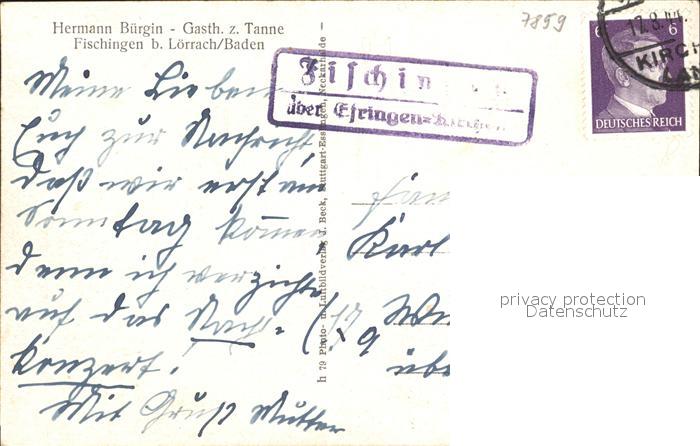 Hermann Bürgin - Gasth. z. Tanne
Fischingen b. Lörrach/Baden
7859
Fischingen
über Efringen=Kirchen
17.8.44.
KIRCH
6 6
DEUTSCHES REICH
Meine Lieben
Euch zur Nachricht
daß wir erst am
Sonntag kommen
denn ich verzichte
auf das Nach-
konzert!
Mit Gruß Mutter
h 79 Photo- u. Luftbildverlag J. Beck, Stuttgart-Esslingen, Neckarhalde
Fam
Karl
(17
übe
privacy protection
Datenschutz